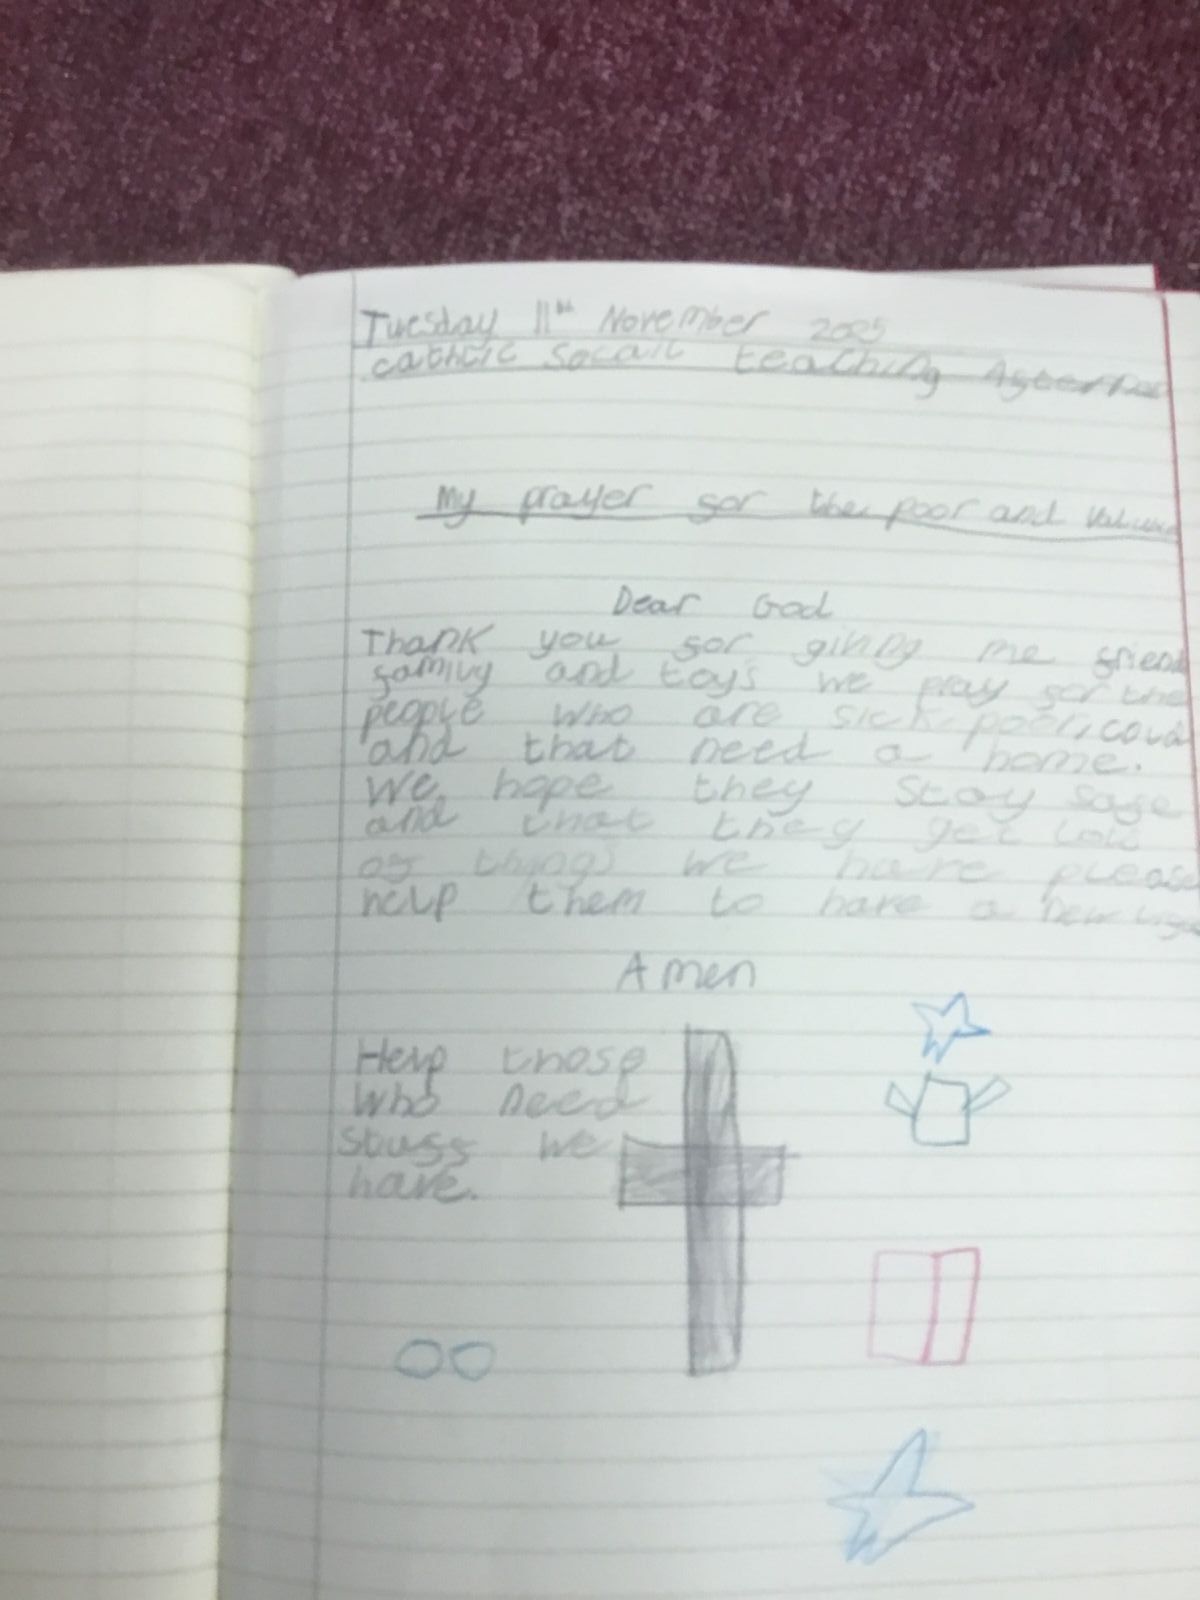 Tuesday 11th November 2025
catholic socail teaching
My prayer for the poor and
Dear God
Thank you for giving me friend
family and toys we pray for the
people who are sick, poor, cold
and that need a home.
We hope they stay safe
and that they get lots
of things we have please
help them to have a new life
Amen
Help those
who need
stuff we
have.